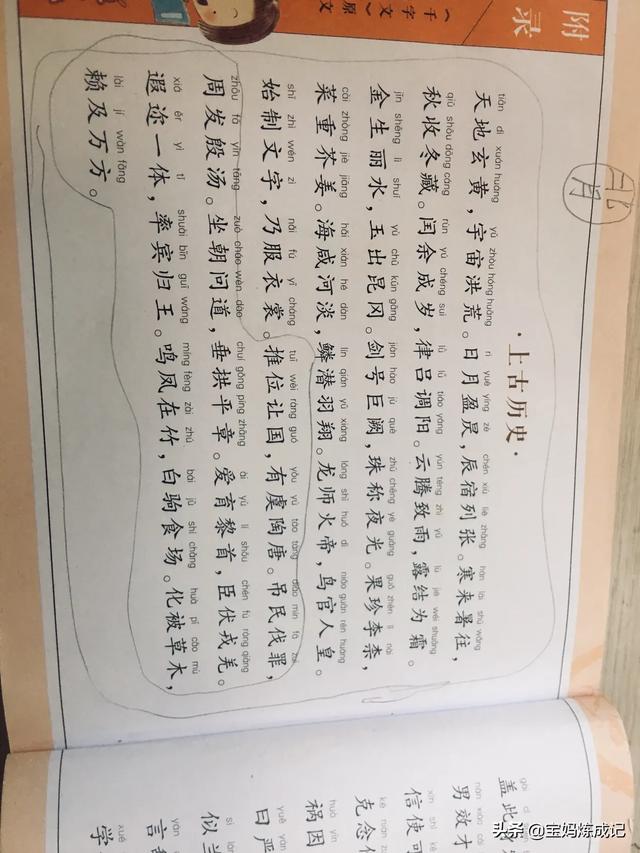 附录
《千字文》原文
·上古历史·
tiān dì xuán huáng yǔ zhòu hóng huāng rì yuè yíng zè chén xiù liè zhāng hán lái shǔ wǎng
天地玄黄，宇宙洪荒。日月盈昃，辰宿列张。寒来暑往，
qiū shōu dōng cáng rùn yú chéng suì lǜ lǚ tiáo yáng yún téng zhì yǔ lù jié wéi shuāng
秋收冬藏。闰余成岁，律吕调阳。云腾致雨，露结为霜。
jīn shēng lì shuǐ yù chū kūn gāng jiàn hào jù què zhū chēng yè guāng guǒ zhēn lǐ nài
金生丽水，玉出昆冈。剑号巨阙，珠称夜光。果珍李柰，
cài zhòng jiè jiāng hǎi xián hé dàn lín qián yǔ xiáng lóng shī huǒ dì niǎo guān rén huáng
菜重芥姜。海咸河淡，鳞潜羽翔。龙师火帝，鸟官人皇。
shǐ zhì wén zì nǎi fú yī cháng tuī wèi ràng guó yǒu yú táo táng diào mín fá zuì
始制文字，乃服衣裳。推位让国，有虞陶唐。吊民伐罪，
zhōu fā yīn tāng zuò cháo wèn dào chuí gǒng píng zhāng ài yù lí shǒu chén fú róng qiāng
周发殷汤。坐朝问道，垂拱平章。爱育黎首，臣伏戎羌。
xiá ěr yì tǐ shuài bīn guī wáng míng fèng zài zhú bái jū shí chǎng huà pī cǎo mù
遐迩一体，率宾归王。鸣凤在竹，白驹食场。化被草木，
lài jí wàn fāng
赖及万方。
盖此
男效才
信使可
克念
祸因
曰严
似兰
言
学
头条 @宝妈炼成记